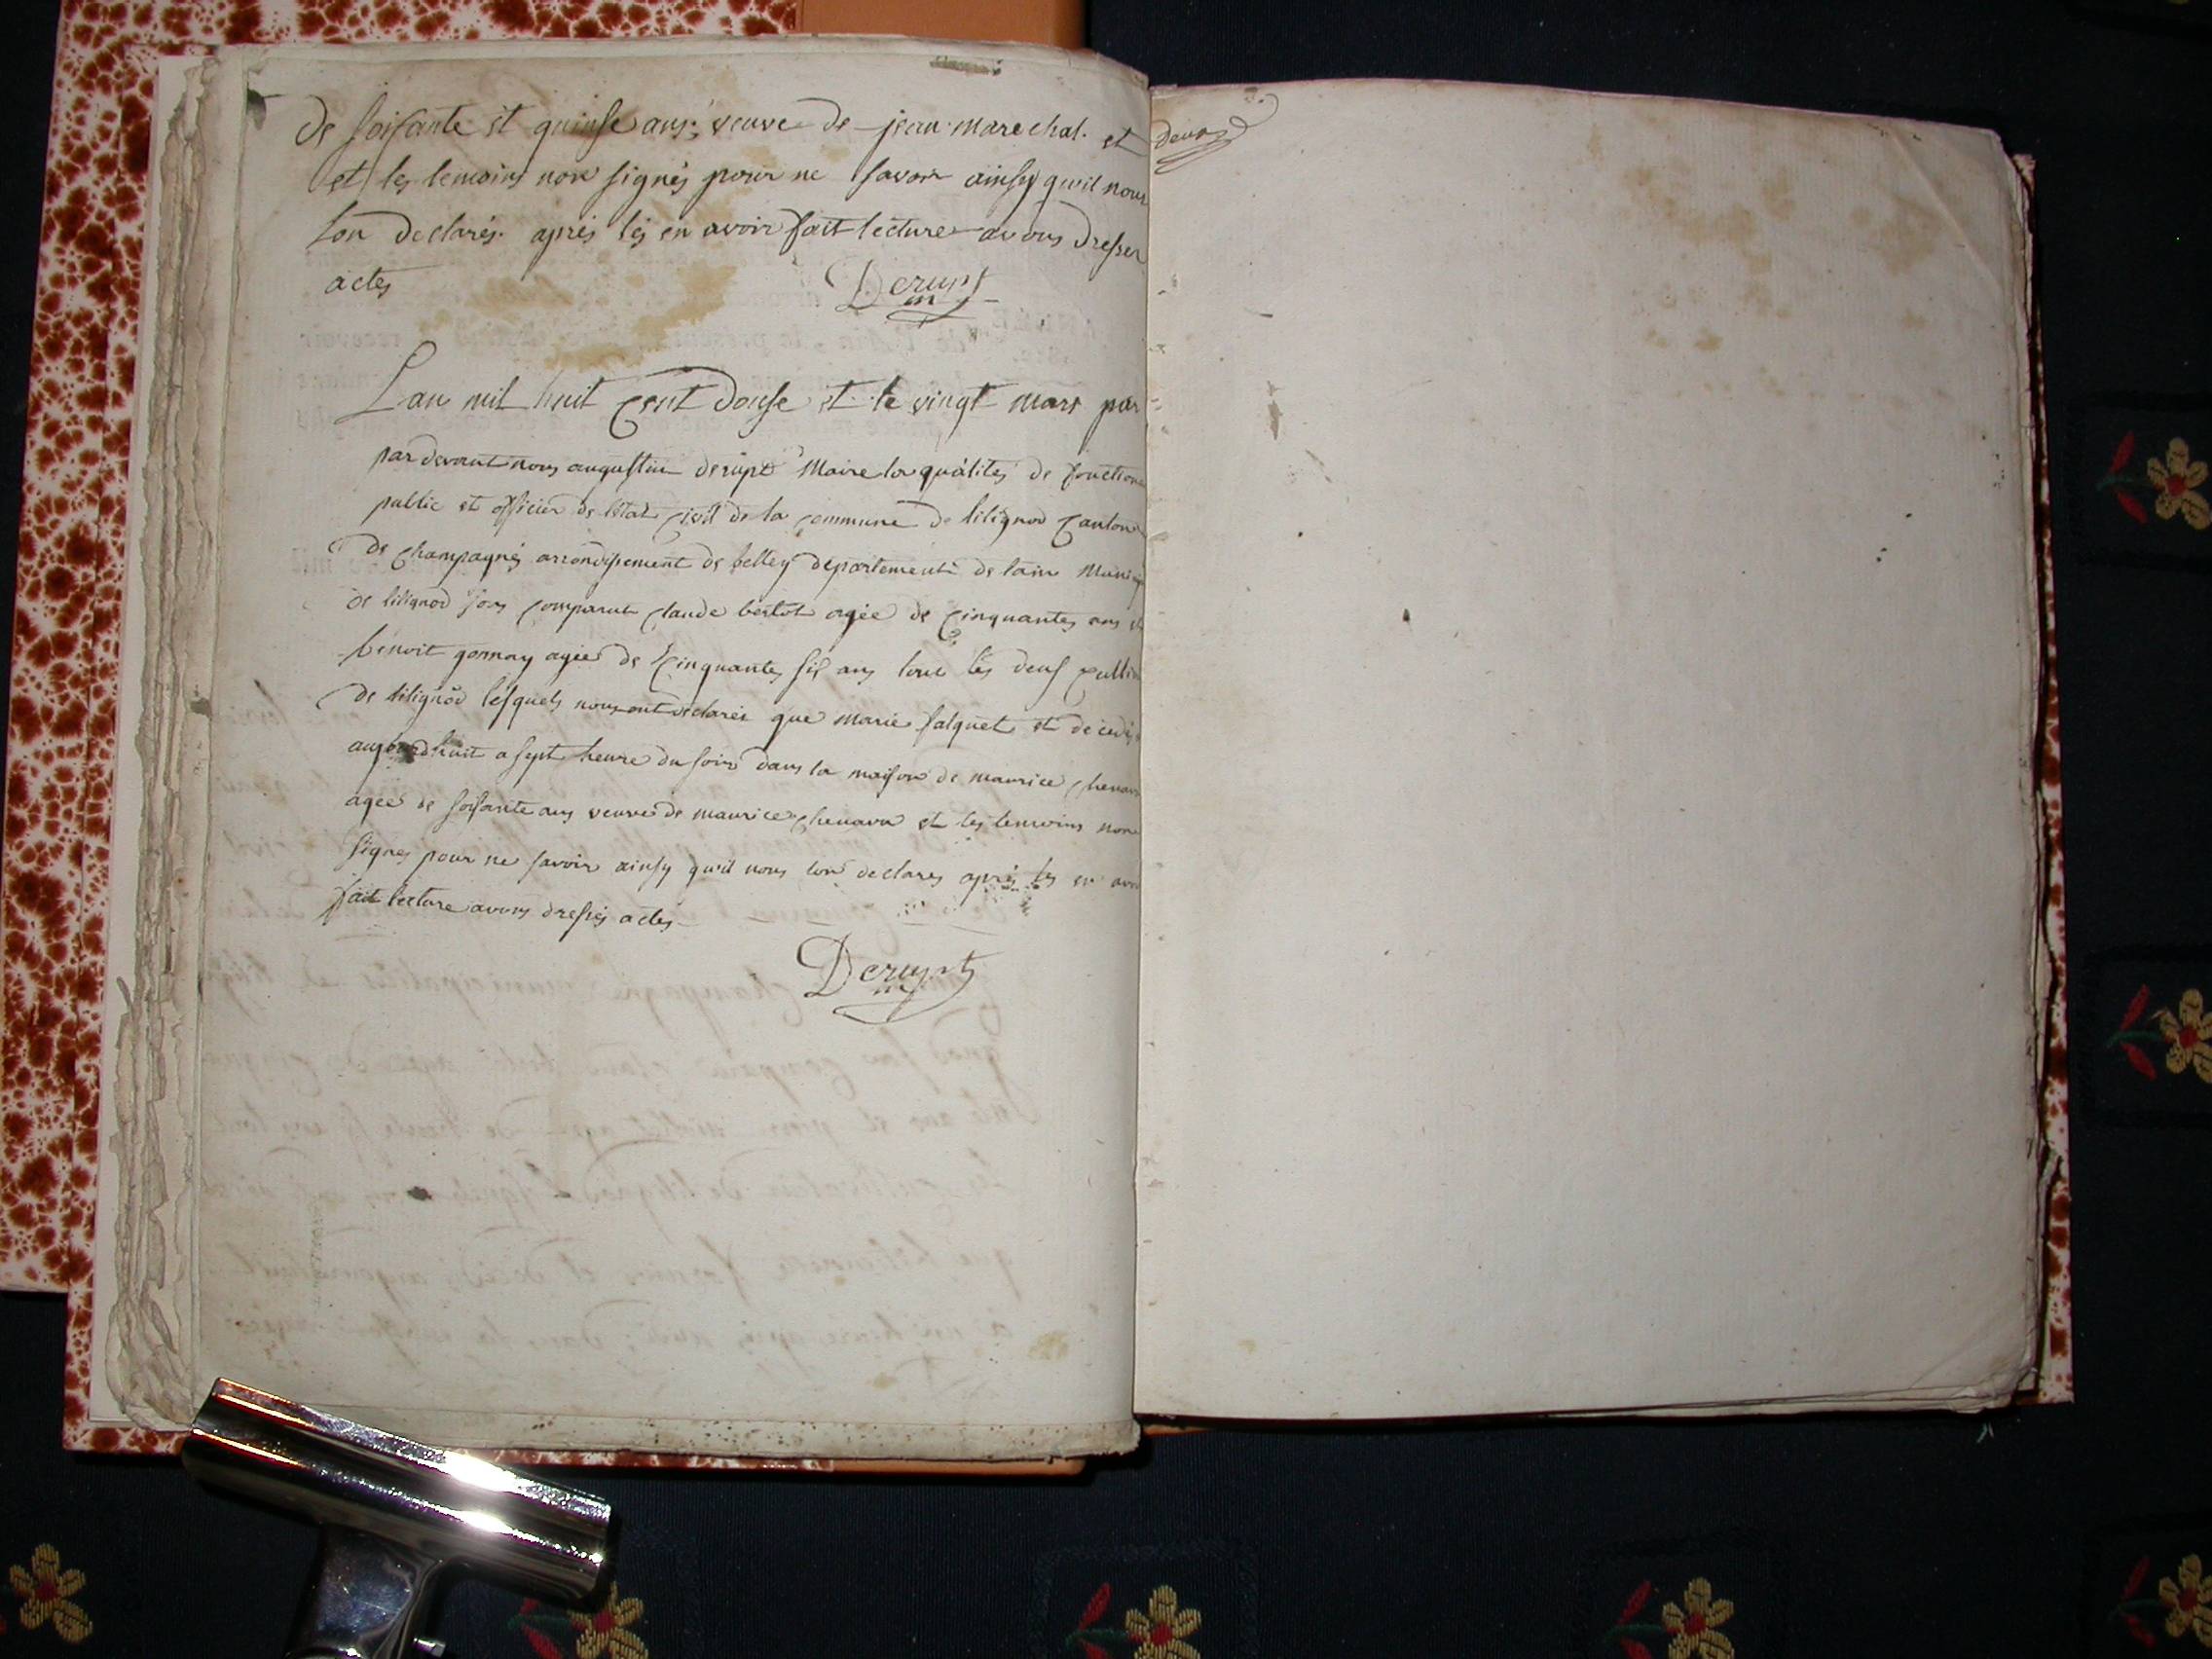 de soisante et quinse ans; veuve de jean marechal. et
et les temoins non signés pour ne savoir ainsy qwil nous
lon declarés. aprés lés en avoir fait lecture avons dresser
actes
Derupt
Lan mil huit cent douse et le vingt mars par
pardevant nous augustin derupt Maire la qualités de fonction
public et officier de létat civil de la commune de lilignod canton
de champagnes arrondisement de belley departement de lain Munici
de lilignod sons comparut claude bertet agée de cinquantes ans et
benoit gonnay agée de cinquantes six ans tout lés deus culti
de lilignod lésquels nous ont declarés que marie falquet et decedé
aujourdhuit a sept heure du soir dans la maison de maurice chenava
agée de soisante ans veuve de maurice chenava et les temoins non
signes pour ne savoir ainsy qwil nous lon declarés aprés lés en avoi
fait lecture avons dressés actés
Derupt